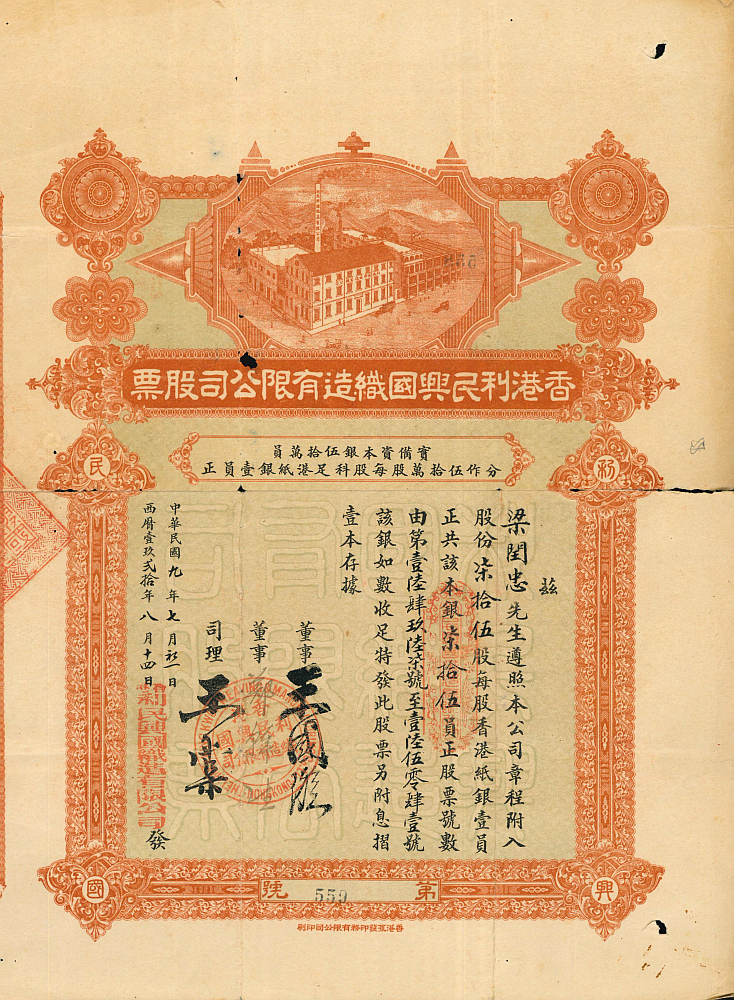 香港利民興國織造有限公司股票
實備資本銀伍拾萬員
分作伍拾萬股每股科足港紙銀壹員正
利
民
茲
梁閏忠先生遵照本公司章程附入
股份柒拾伍股每股香港紙銀壹員
正共該本銀柒拾伍員正股票號數
由第壹陸肆玖陸柒號至壹陸伍零肆壹號
該銀如數收足特發此股票另附息摺
壹本存據
董事 王國璇
董事
司理
中華民國九年七月初一日
西曆壹玖貳拾年八月十四日
利民興國織造有限公司 發
興
國
第 559 號